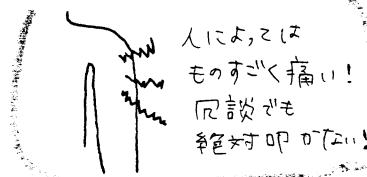 人によっては
ものすごく痛い!
冗談でも
絶対叩かない!